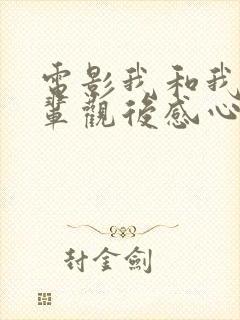 電影我和我
輩觀後感心
封金劍